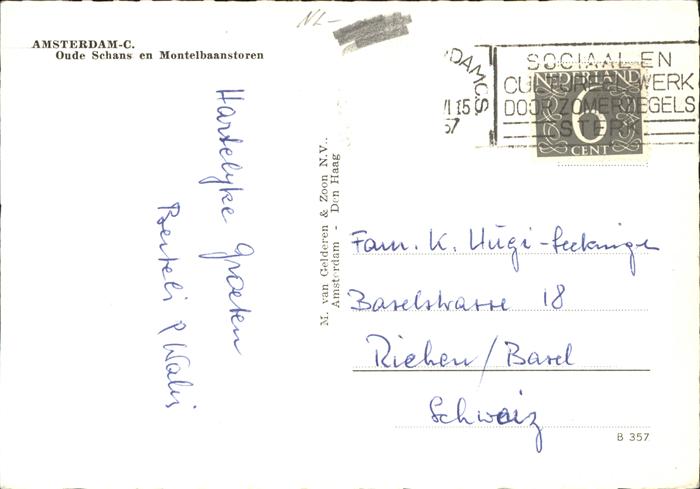 NL-
AMSTERDAM-C.
Oude Schans en Montelbaanstoren
Hartelyke Groeten
M. van Gelderen & Zoon N.V..
Amsterdam - Den Haag
DAM C.S.
VI 15
57
SOCIAAL EN
CULTUREEL WERK
DOOR ZOMERZEGELS
STERK
NEDERLAND
6
CENT
Fam. K. Hügi-
Baselstrasse 18
Riehen/Basel
Schweiz
B 357